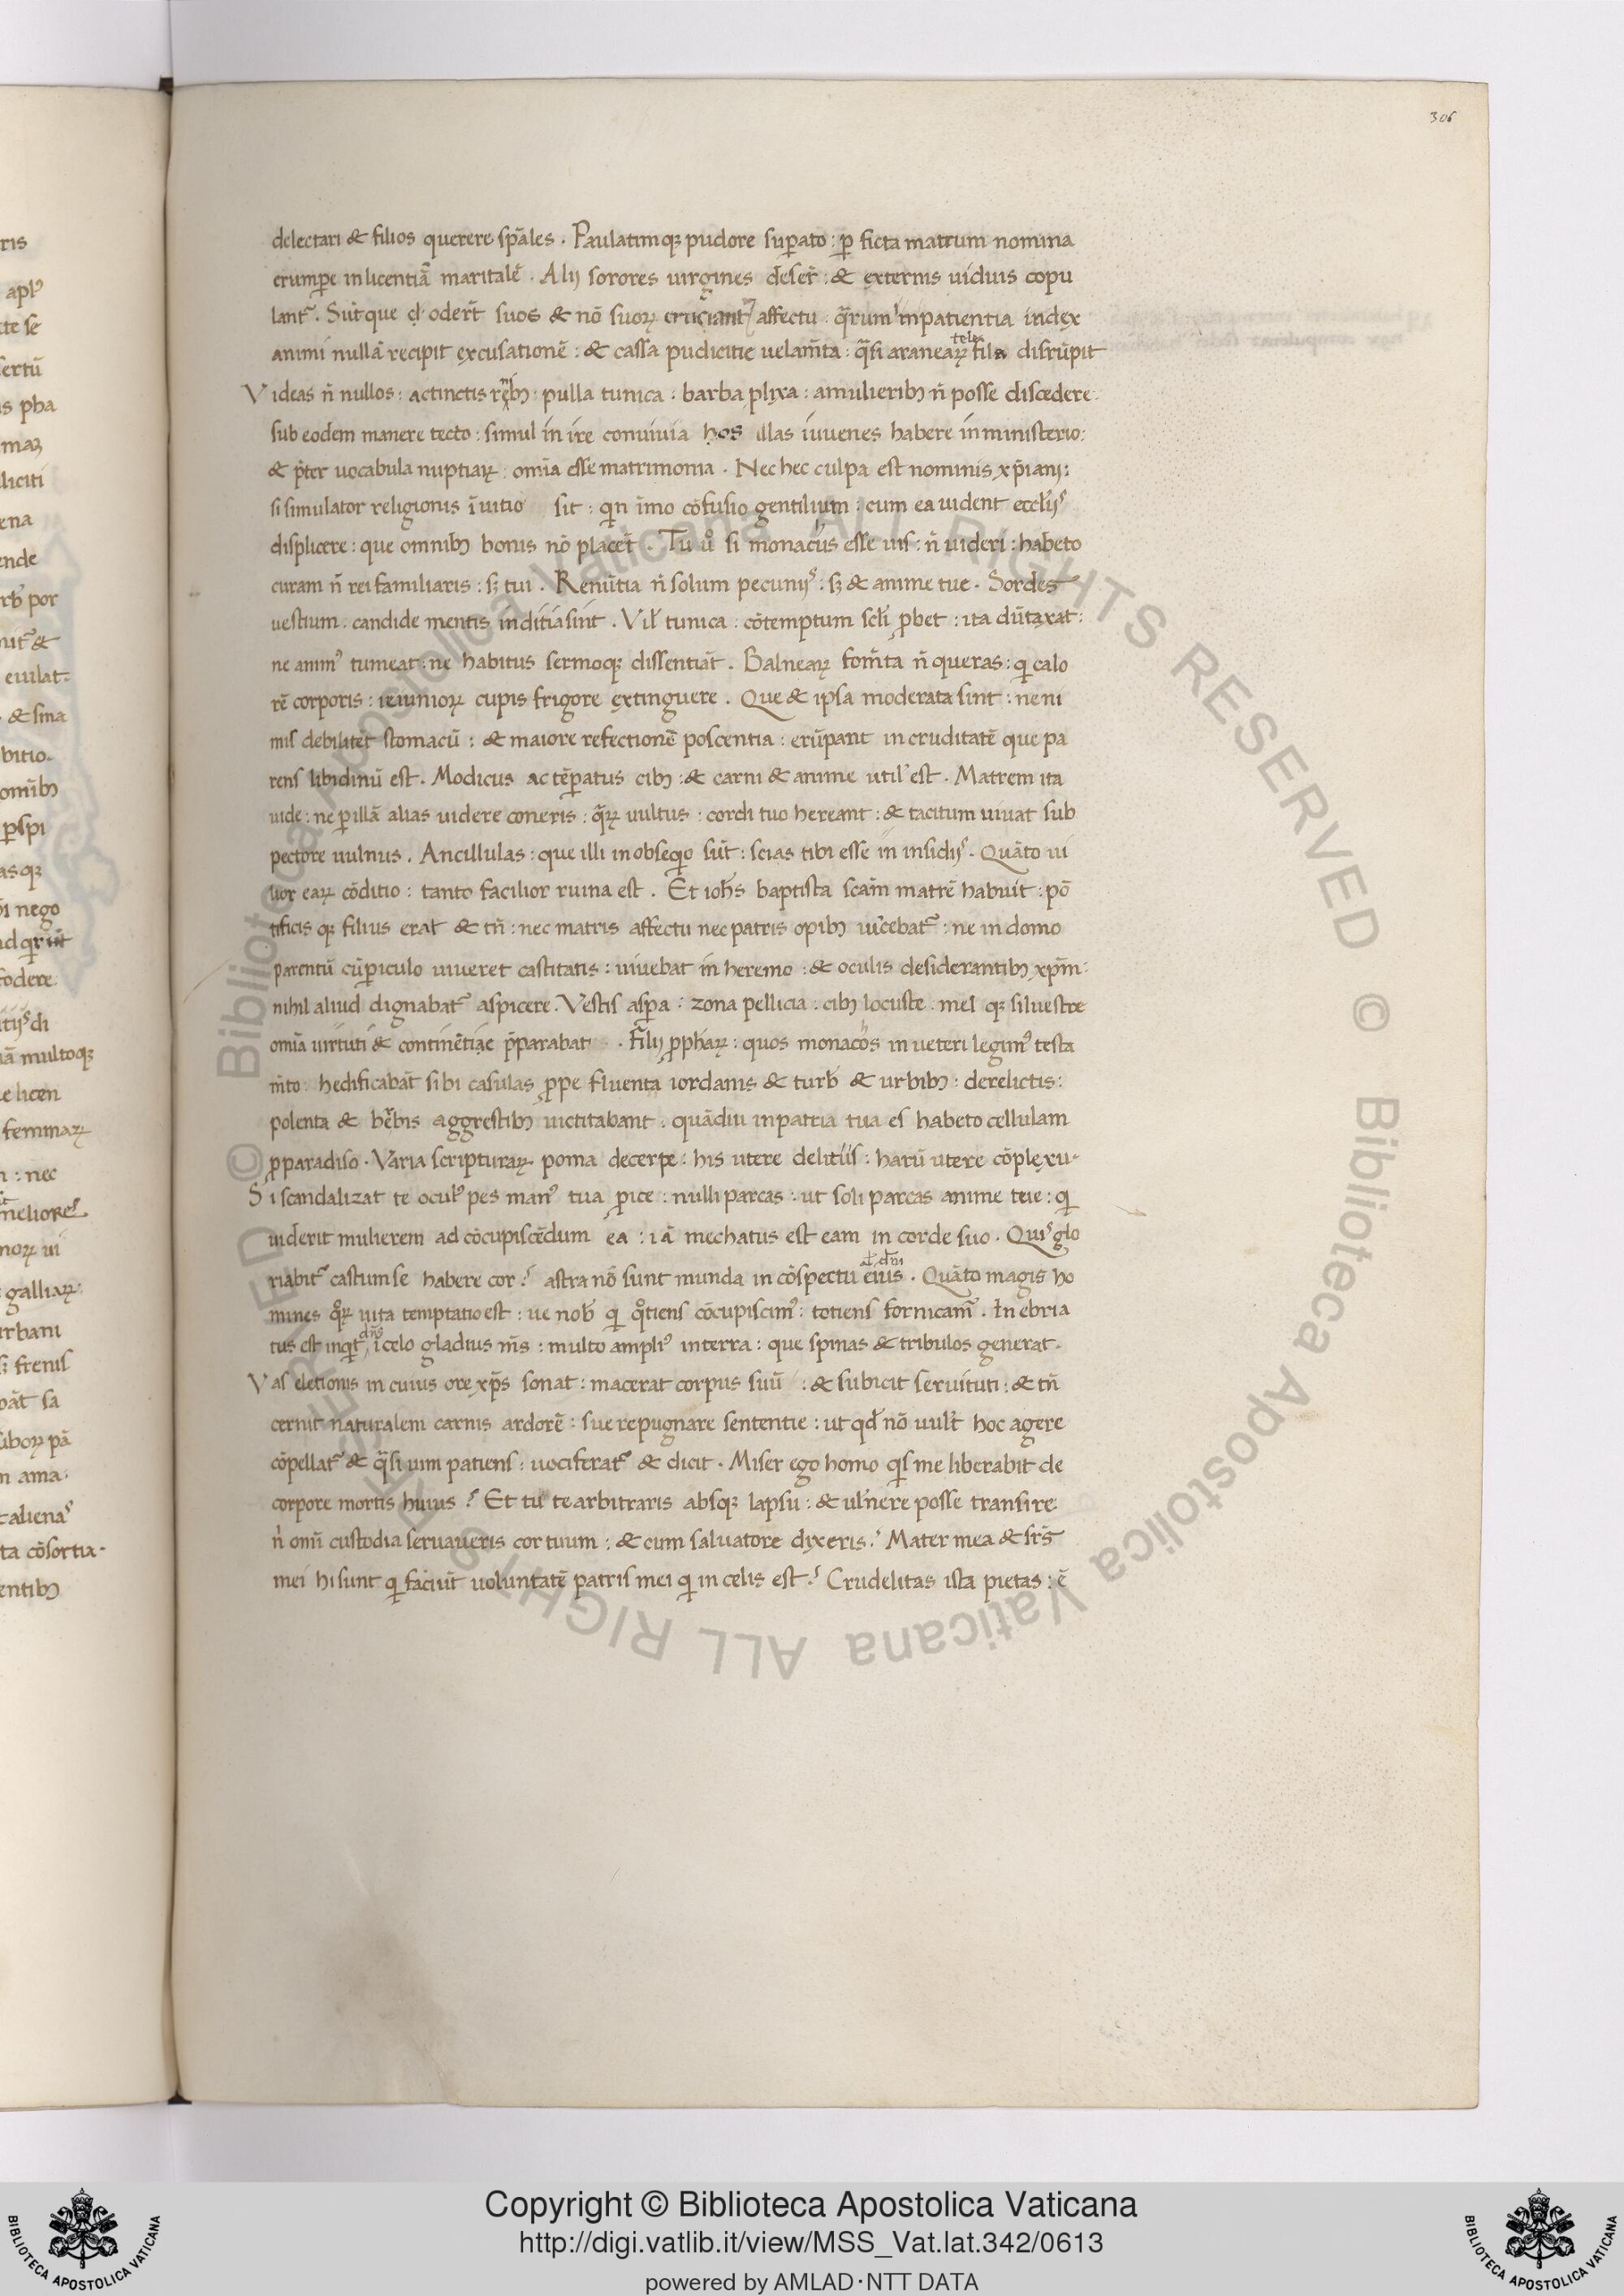 306
delectari & filios querere sp̃ales . Paulatimqȝ pudore suꝑato : ꝑ ficta matrum nomina
erumꝑe in licentiã maritalẽ . Alij sorores uirgines deser̃ : & externis uiduis copu
lant̃ . Sũtque q̨ oder̃t suos & nõ suoꝝ affectu : q̃rum inpatientia index
animi nullã recipit excusationẽ : & cassa pudicitie uelam̃ta : q̃si araneaꝝ fila disrũpit
telax
Videas ñ nullos : accinctis rẽbȝ : pulla tunica : barba ꝓlixa : a mulieribȝ ñ posse discedere .
sub eodem manere tecto : simul in ire conuiuia hos illas iuuenes habere in ministerio :
& p̃ter uocabula nuptiaꝝ : omĩa esse matrimonia . Nec hec culpa est nominis xp̃iani :
si simulator religionis ĩ uitio sit : qin ĩmo cõfusio gentilium : cum ea uident eccl̃ijˢ
displicere : que omnibȝ bonis nõ placẽt . Tu uº si monachus esse uis : ñ uideri : habeto
curam ñ rei familiaris : sȝ tui . Renũtia ñ solum pecunijˢ : sȝ & anime tue . Sordes
uestium : candide mentis inditia sint . Vil̃ tunica : cõtemptum scl̃i ꝓbet : ita dũtaxat :
ne anim᾽ tumeat : ne habitus sermoqȝ dissentiãt . Balneaꝝ fom̃ta ñ queras : qi calo
rẽ corporis : ieiunioꝝ cupis frigore extinguere . Que & ipsa moderata sint : ne ni
mis debilitẽt stomacũ : & maiore refectionẽ poscentia : erũpant in cruditatẽ que pa
rens libidinũ est . Modicus ac tẽꝑatus cibȝ : & carni & anime util᾽ est . Matrem ita
uide : ne ꝑ illã alias uidere coneris : q̃ꝝ uultus : cordi tuo hereant : & tacitum uiuat sub
pectore uulnus . Ancillulas : que illi in obseqio sũt : scias tibi esse in insidijˢ . Quãto ui
lior eaꝝ cõditio : tanto facilior ruina est . Et ioh̃s baptista scam̃ matrẽ habuit : põ
tificis qȝ filius erat & tñ : nec matris affectu nec patris opibȝ uĩcebat̃ : ne in domo
parentũ cũ ꝑiculo uiueret castitatis : uiuebat in heremo : & oculis desiderantibȝ xp̃m :
nihil aliud dignabat̃ aspicere . Vestis asꝑa : zona pellicia : cibȝ locuste : mel qȝ siluestre
omĩa uirtuti & continẽtiae p̃parabat . Filij ꝓphaꝝ : quos monachos in ueteri legim᾽ testa
m̃to : hedificabãt sibi casulas ꝓpe fluenta iordanis & turb̃ & urbibȝ : derelictis :
polenta & hẽbis aggrestibȝ uictitabant . quãdiu in patria tua es habeto cellulam
ꝓ paradiso . Varia scripturaꝝ poma decerpe : his utere delitijs : harũ utere cõplexu .
Si scandalizat te ocul᾽ pes man᾽ tua ꝓice : nulli parcas : ut soli parcas anime teie : qi
uiderit mulierem ad cõcupiscẽdum ea : iã mechatus est eam in corde suo . Quiˢ glo
riabit̃ castum se habere cor ? astra nõ sunt munda in cõspectu eius . Quãto magis ho
al̃ dñi
mines qºꝝ uita temptatio est : ue nob̃ qi qºtiens cõcupiscim᾽ : totiens fornicam̃ . In ebria
tus est inqit ĩ celo gladius m̃s : multo ampli᾽ in terra : que spinas & tribulos generat .
dñs
Vas eletionis in cuius ore xp̃s sonat : macerat corpus suũ : & subicit seruituti : & tñ
cernit naturalem carnis ardorẽ : sue repugnare sententie : ut qd̃ nõ uult hoc agere
cõpellat̃ & q̃si uim patiens : uociferat̃ & dicit . Miser ego homo qis me liberabit de
corpore mortis huius ? Et tu te arbitraris absqȝ lapsu : & ul̃nere posse transire
ñ omñ custodia seruaueris cor tuum : & cum saluatore dixeris ? Mater mea & fr̃s
mei hi sunt qi faciũt uoluntatẽ patris mei qi in celis est ? Crudelitas ista pietas : ẽ
© Biblioteca Apostolica Vaticana ALL RIGHTS RESERVED
Copyright © Biblioteca Apostolica Vaticana
http://digi.vatlib.it/view/MSS_Vat.lat.342/0613
powered by AMLAD·NTT DATA
BIBLIOTECA APOSTOLICA VATICANA
BIBLIOTECA APOSTOLICA VATICANA